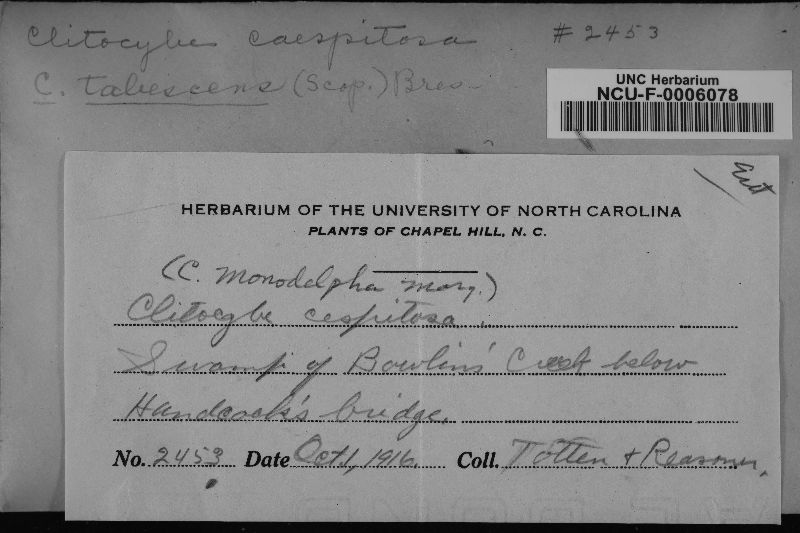 Clitocybe caespitosa #2453
C. tabescens (Scop.) Bres.
UNC Herbarium
NCU-F-0006078
HERBARIUM OF THE UNIVERSITY OF NORTH CAROLINA
PLANTS OF CHAPEL HILL, N. C.
(C. Monodelpha Morg.)
Clitocybe cespitosa.
Swamp of Bowlins' Creek below
Handcock's bridge.
No. 2453 Date Oct 1, 1916. Coll. Totten + Reasoner.